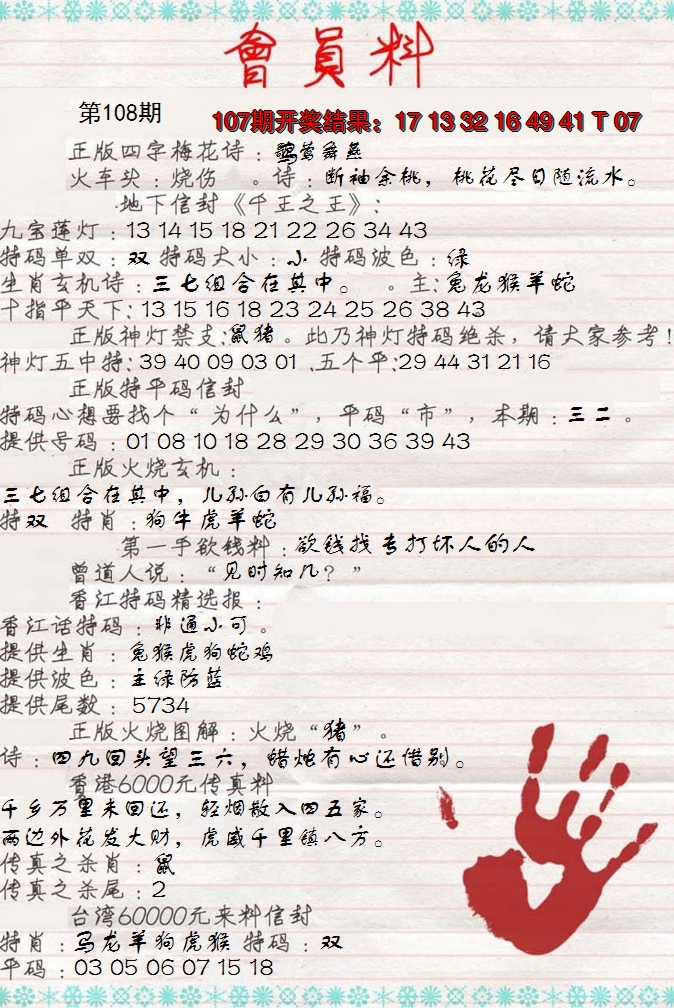 會員料
第108期
107期开奖结果：17 13 32 16 49 41 T 07
正版四字梅花诗：鹊莺舞燕
火车头：烧伤 。诗：断袖余桃，桃花尽日随流水。
地下信封《千王之王》：
九宝莲灯：13 14 15 18 21 22 26 34 43
特码单双：双 特码大小：小 特码波色：绿
生肖玄机诗：三七组合在其中。 。主：兔龙猴羊蛇
十指平天下：13 15 16 18 23 24 25 26 38 43
正版神灯禁支：鼠猪。此乃神灯特码绝杀，请大家参考！
神灯五中特：39 40 09 03 01 .五个平：29 44 31 21 16
正版特平码信封
特码心想要找个“为什么”，平码“市”，本期：三二。
提供号码：01 08 10 18 28 29 30 36 39 43
正版火烧玄机：
三七组合在其中，儿孙自有儿孙福。
特双 特肖：狗牛虎羊蛇
第一手欲钱料：欲钱找专打坏人的人
曾道人说：“见时知几？”
香江特码精选报：
香江话特码：非通小可。
提供生肖：兔猴虎狗蛇鸡
提供波色：主绿防蓝
提供尾数：5734
正版火烧图解：火烧“猪”。
诗：四九回头望三六，蜡烛有心还借别。
香港6000元传真料
千乡万里未回还，轻烟散入四五家。
两边外花发大财，虎威千里镇八方。
传真之杀肖：鼠
传真之杀尾：2
台湾60000元来料信封
特肖：马龙羊狗虎猴 特码：双
平码：03 05 06 07 15 18